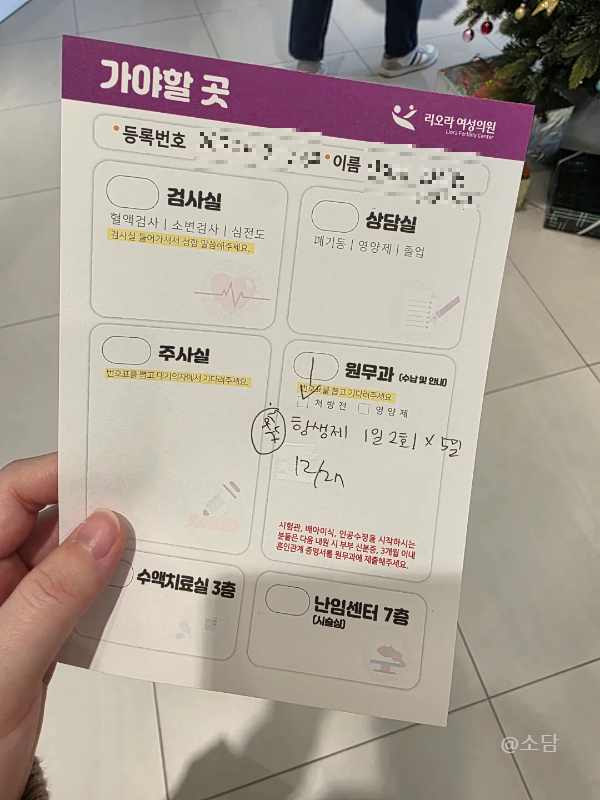 가야할 곳
리오라 여성의원
Liora Fertility Center
• 등록번호
• 이름
검사실
혈액검사 | 소변검사 | 심전도
검사실 들어가셔서 성함 말씀해주세요.
상담실
폐기동 | 영양제 | 졸업
주사실
번호표를 뽑고 대기의자에서 기다려주세요.
원무과 (수납 및 안내)
번호표를 뽑고 기다려주세요
처방전 영양제
항생제 1일 2회 × 5일
시험관, 배아이식, 인공수정을 시작하시는
분들은 다음 내원 시 부부 신분증, 3개월 이내
혼인관계 증명서를 원무과에 제출해주세요.
수액치료실 3층
난임센터 7층
(시술실)
@소담